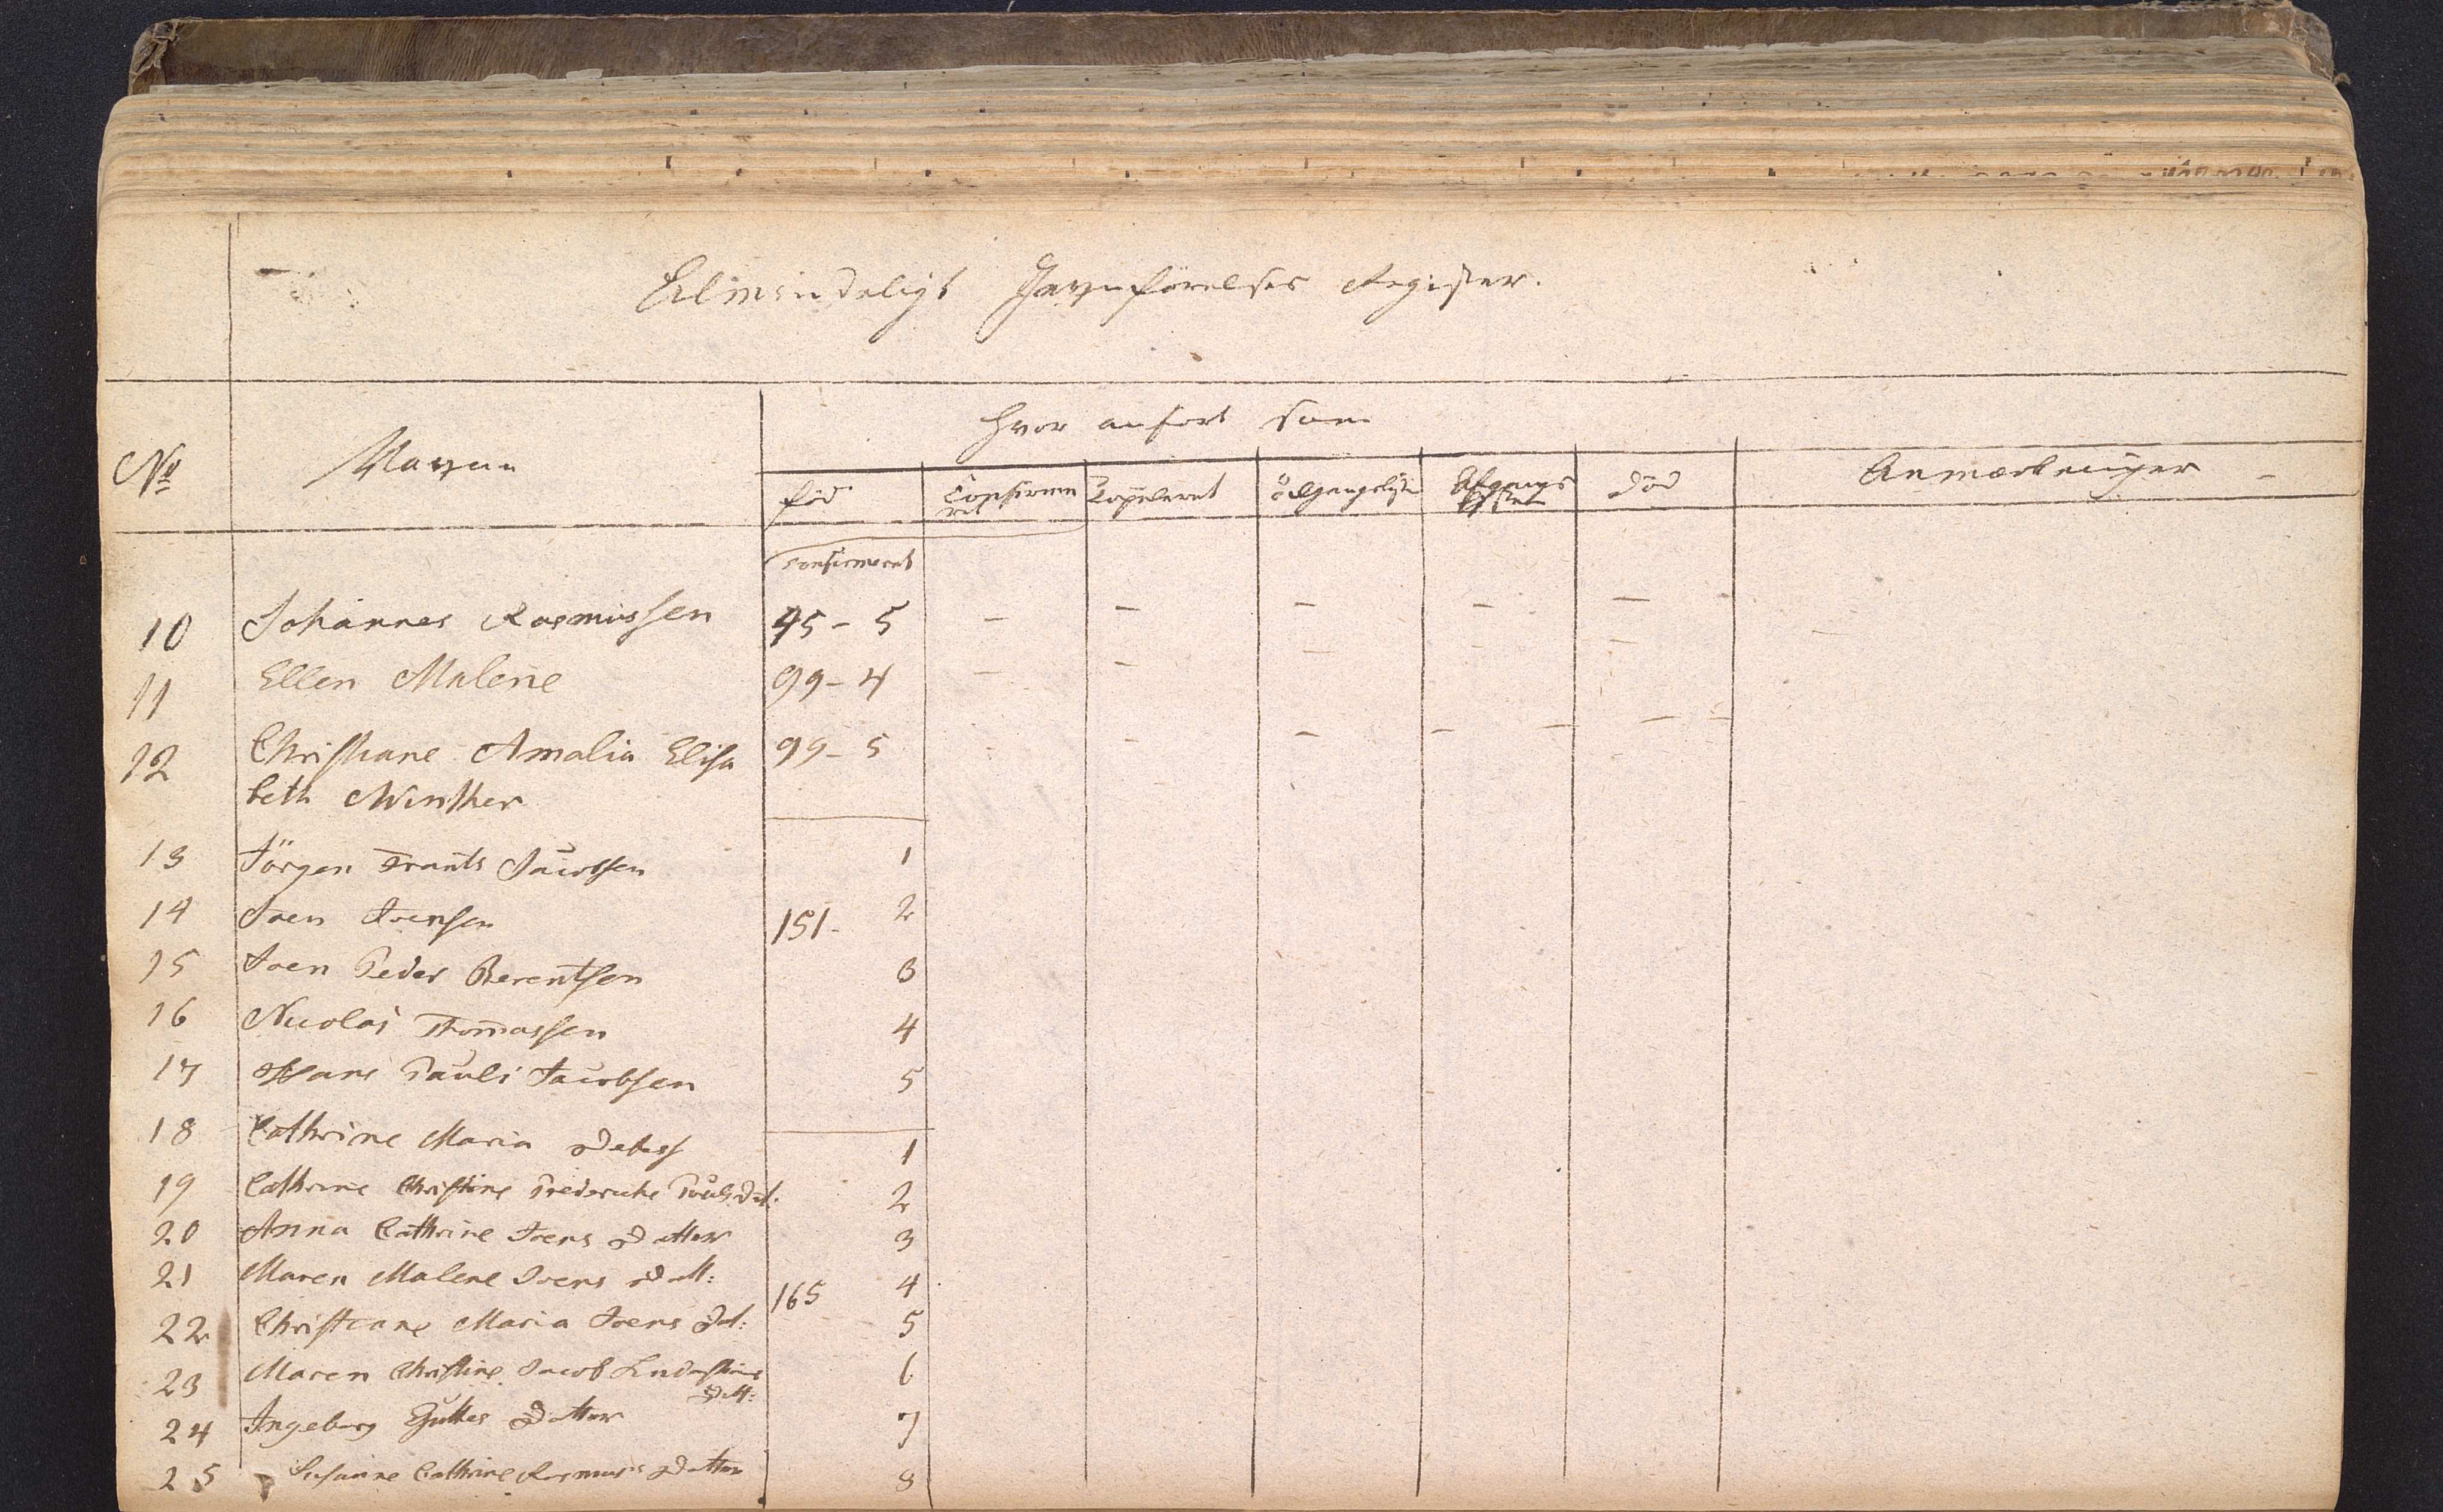 Almindeligt Jævnførelses Register.
No
Navnene
Hvor anført som
Anmærkninger
født
Confirme
ret
Copuleret
Tilgangsliste
Afgangs
død
confirmeret
10 Johannes Rasmussen 45-5 - - - - -
11 Ellen Malene 99-4 - - - - -
12 Christiane Amalia Elisa 99-5 - - - - -
beth Winther
13 Jörgen Frants Jacobsen 1
14 Joen Joensen 151- 2
15 Joen Peder Berentsen 3
16 Nicolai Thomassen 4
17 Hans Pauli Jacobsen 5
18 Cathrine Maria Debess 1
19 Cathrine Christine Frederiche Pouls Dat. 2
20 Anna Cathrine Joens Datter 3
21 Maren Malene Joens Datt: 165 4
22 Christiane Maria Joens Dat: 5
23 Maren Christine Jacob 6
Datt:
24 Ingeborg Guttes Datter 7
25 Susanne Cathrine Rasmus Datter 8